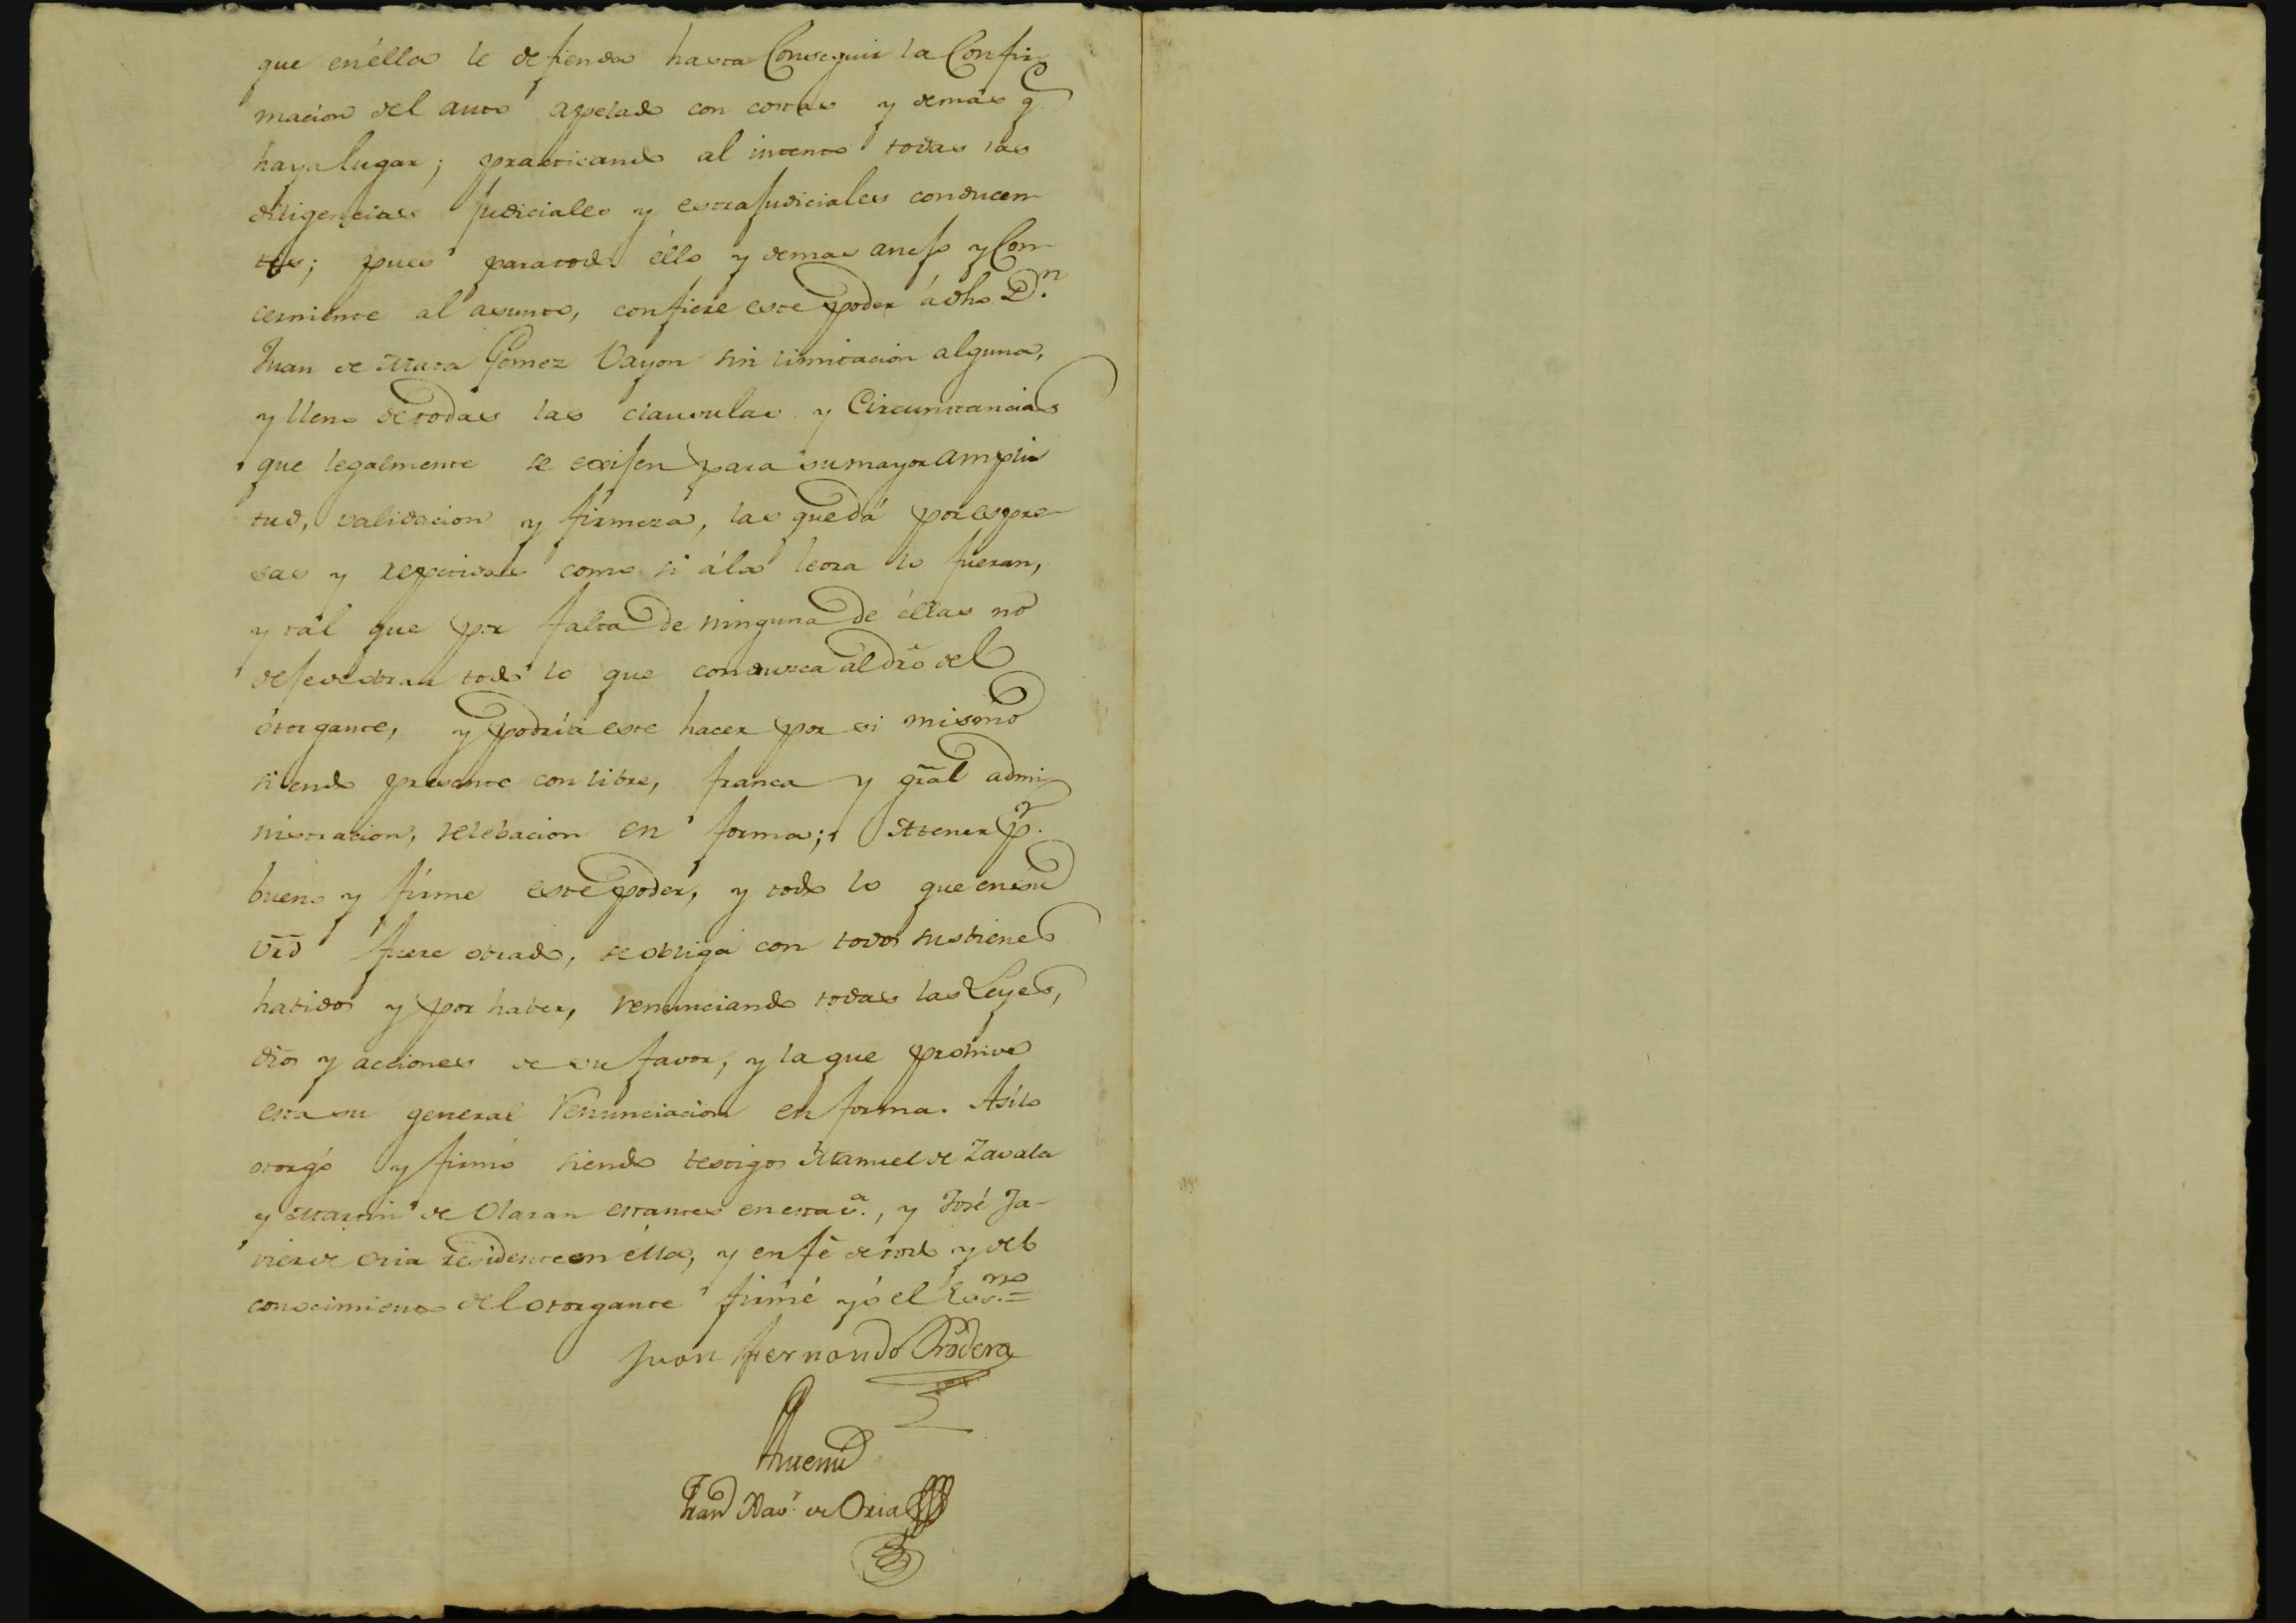 que en élla le defienda hasta Conseguir la Confir-
macion del auto apelado con costas y demás q̃
haya lugar; practicando al intento todas las
diligencias Judiciales y estraJudiciales conducen-
tes; pues para todo éllo y demas anejo y Con-
cerniente al asunto, confiere este poder á dho Dn.
Juan de Mata Gomez Vayon sin limitacion alguna,
y lleno de todas las clausulas y Circunstancias
que legalmente se exijen para su mayor ampli
tud, validacion y firmeza, las que dá por espre-
sas y repetidas como si á la letra lo fueran,
y tál que por falta de ninguna de éllas no
deje de obrar todo lo que conduzca al dro̅ del
otorgante, y podria este hacer por si mismo
siendo presente con libre, franca y gr̃al admi-
nistracion, relebacion en forma; A tener pr.
bueno y firme este poder, y todo lo que en su
vr̃d fuere obrado, se obliga con todos sus bienes
habidos y por haber, renunciando todas las Leyes,
dr̃os y acciones de su favor, y la que prohive
esta su general renunciacion en forma. Asi lo
otorgó y firmó siendo testigos Manuel de Zavala
y Martin de Olaran estantes en esta va., y José Ja-
vier de Oria residente en élla, y en fé de todo y del
conocimiento del otorgante firmé yó el Esno.=
Juan Fernando Orodera
Ante mi
Franco Xavr. de Oria